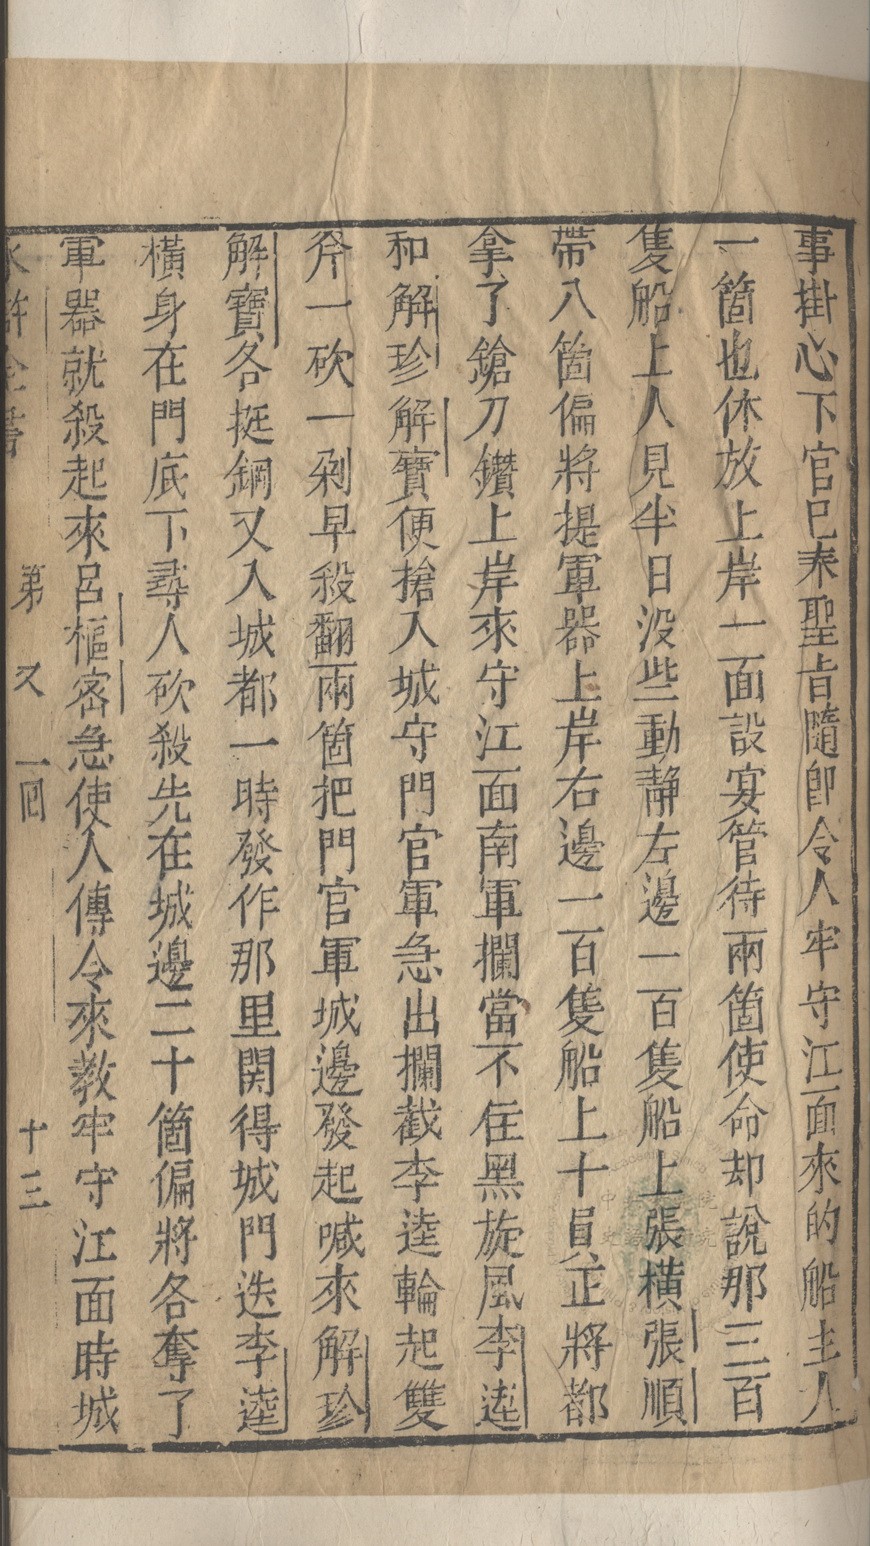 事掛心下官已奉聖旨隨卽令人牢守江面來的船主人
一箇也休放上岸一面設宴管待兩箇使命却說那三百
隻船上人見半日没些動靜左邊一百隻船上張橫張順
帶八箇偏將提軍器上岸右邊一百隻船上十員正將都
拿了鎗刀鑽上岸來守江面南軍攔當不住黑旋風李逵
和解珍解寶便搶入城守門官軍急出攔截李逵輪起雙
斧一砍一剁早殺翻兩箇把門官軍城邊發起喊來解珍
解寶各挺鋼叉入城都一時發作那里関得城門迭李逵
橫身在門底下尋人砍殺先在城邊二十箇偏將各奪了
軍器就殺起來呂樞密急使人傳令來教牢守江面時城
水滸全書 第 又 一囘 十三